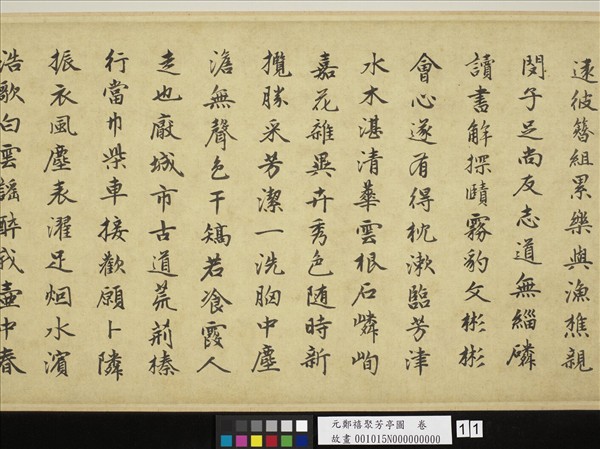 遠彼簪組累樂與漁樵親
閔予足尚友志道無緇磷
讀書解探賾霧豹文彬彬
會心遂有得枕漱臨芳津
水木湛清華雲根石嶙峋
嘉花雜異卉秀色随時新
攬勝采芳潔一洗胸中塵
澹無聲色干矯若飡霞人
走也厭城市古道荒荊榛
行當巾柴車接歡願卜隣
振衣風塵表濯足烟水濱
浩歌白雲謡醉我壷中春
元鄭禧聚芳亭圖 卷
故畫 001015N000000000
11